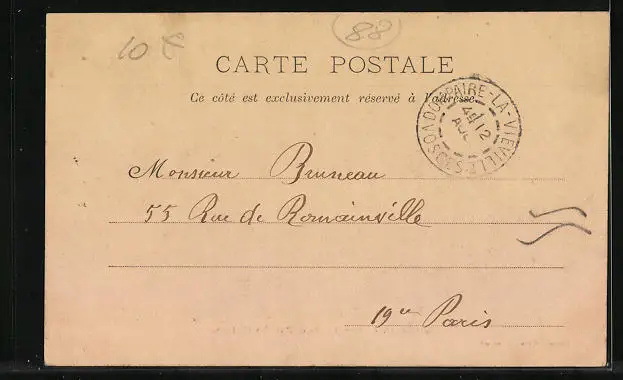 10 €
88
CARTE POSTALE
Ce côté est exclusivement réservé à l'adresse.
DOMPAIRE-LA-VIEVILLE
VOSGES
12
Monsieur Bruneau
55 Rue de Romainville
19e Paris